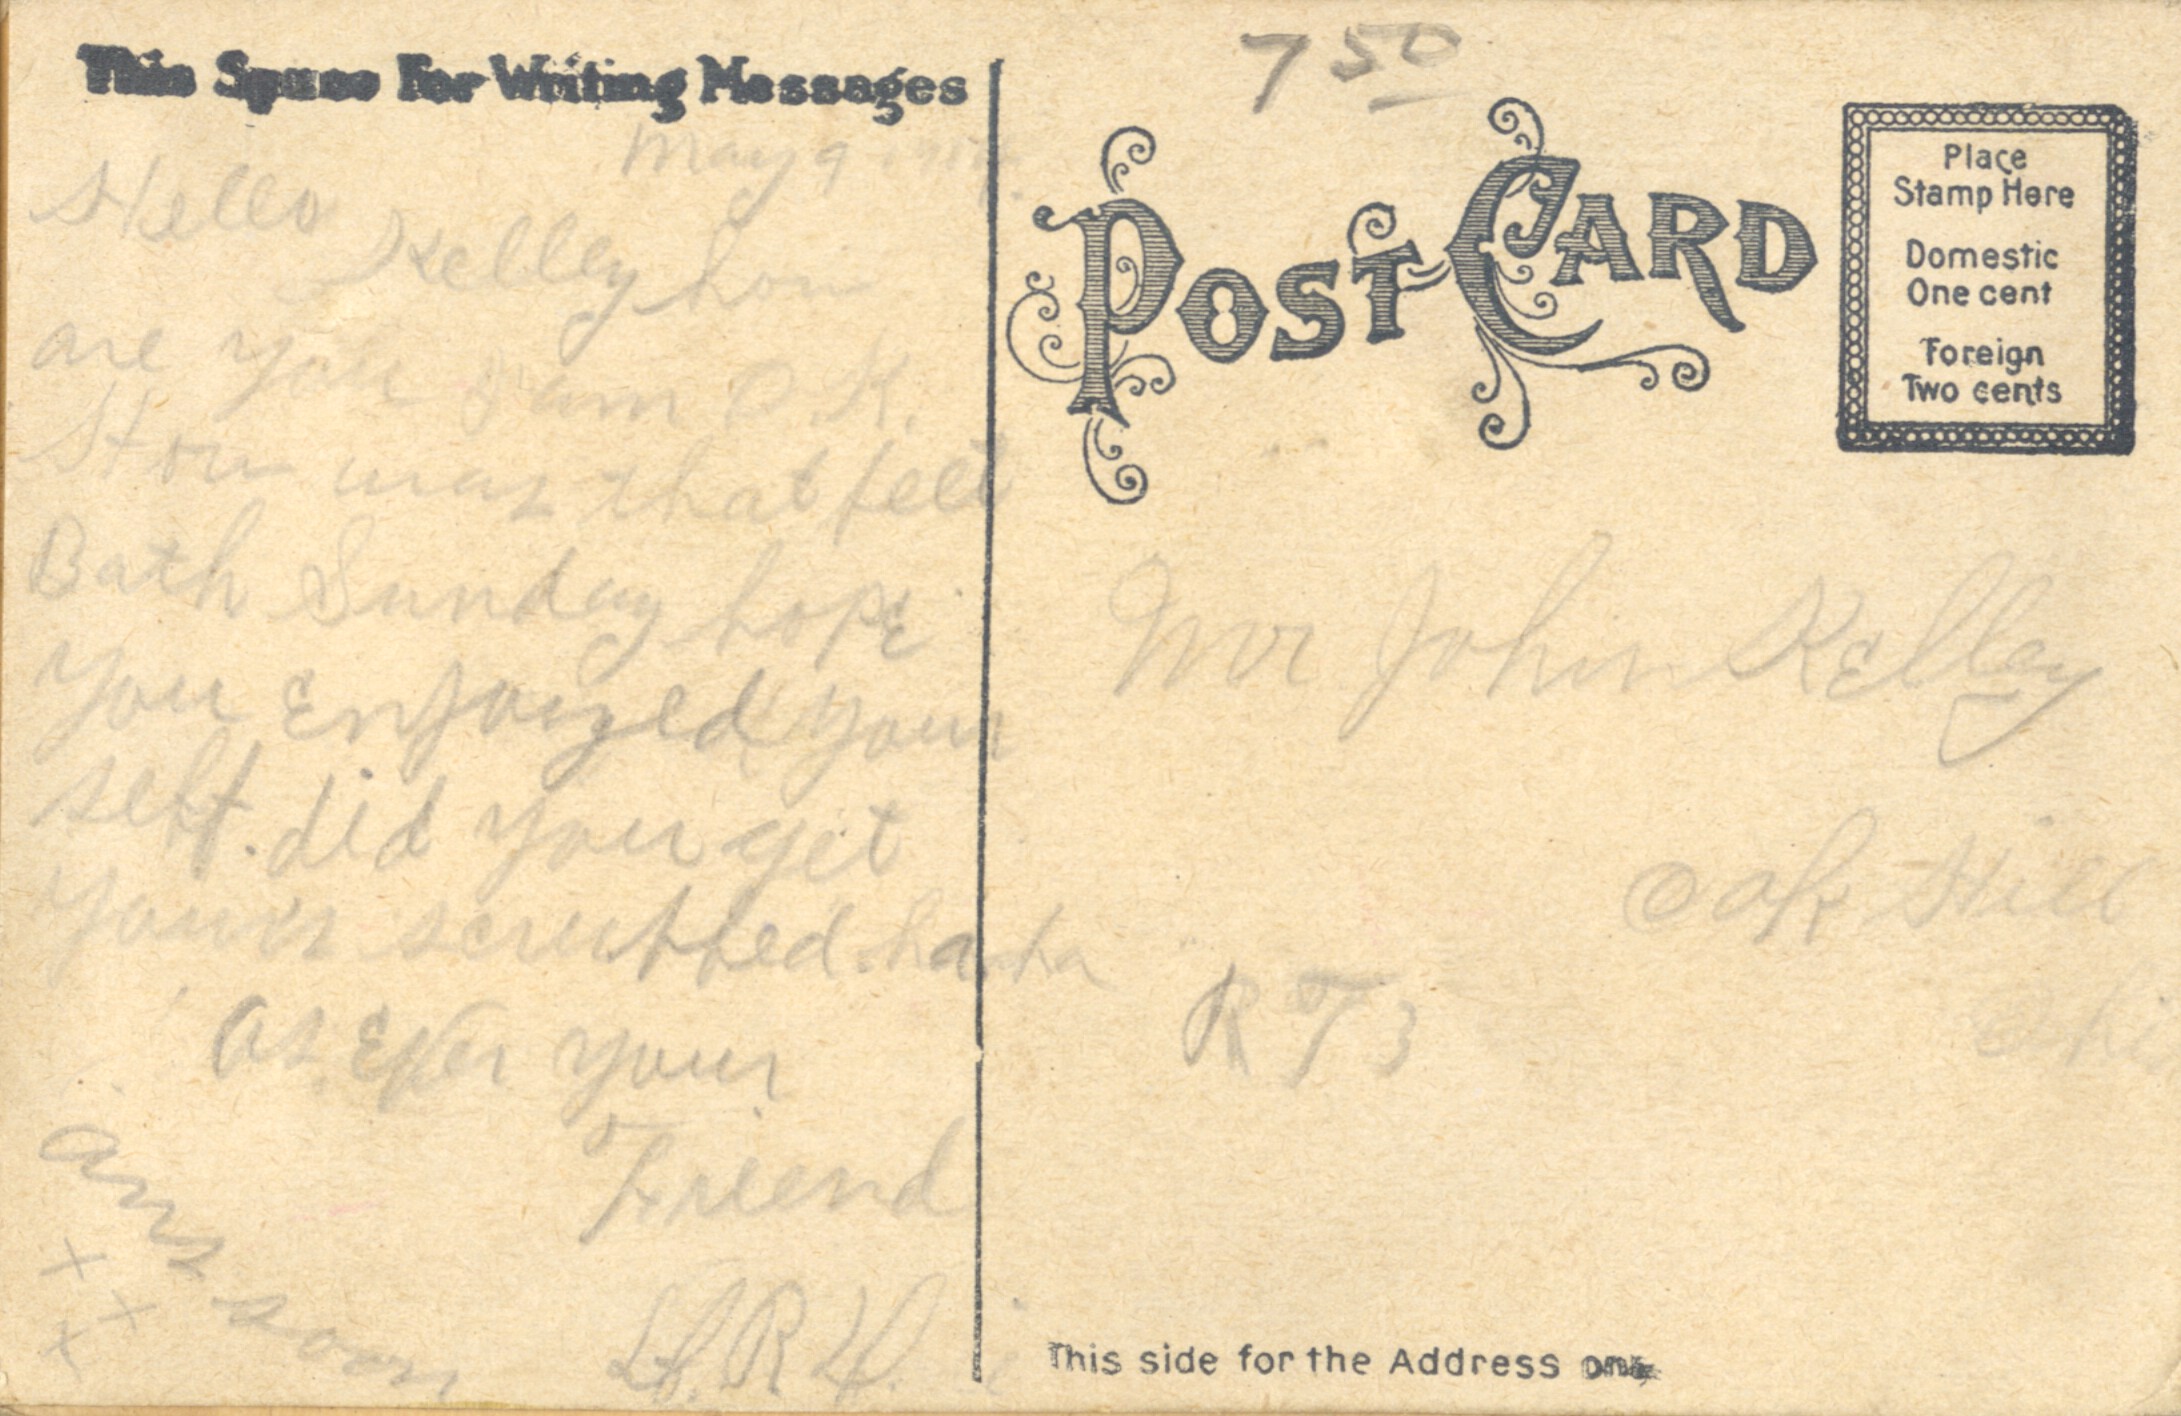 This Space For Writing Messages
May 9
Hello
Kelley how
are you I am O.K.
How was that feet
Bath Sunday hope
you Enjoyed your
self. did you get
your's scrubbed. ha ha
as Ever your
Friend
ans soon
x
x
x
7 50
POST CARD
Place
Stamp Here
Domestic
One cent
Foreign
Two cents
Mr John Kelley
Oak Hill
Ohio
R T 3
This side for the Address